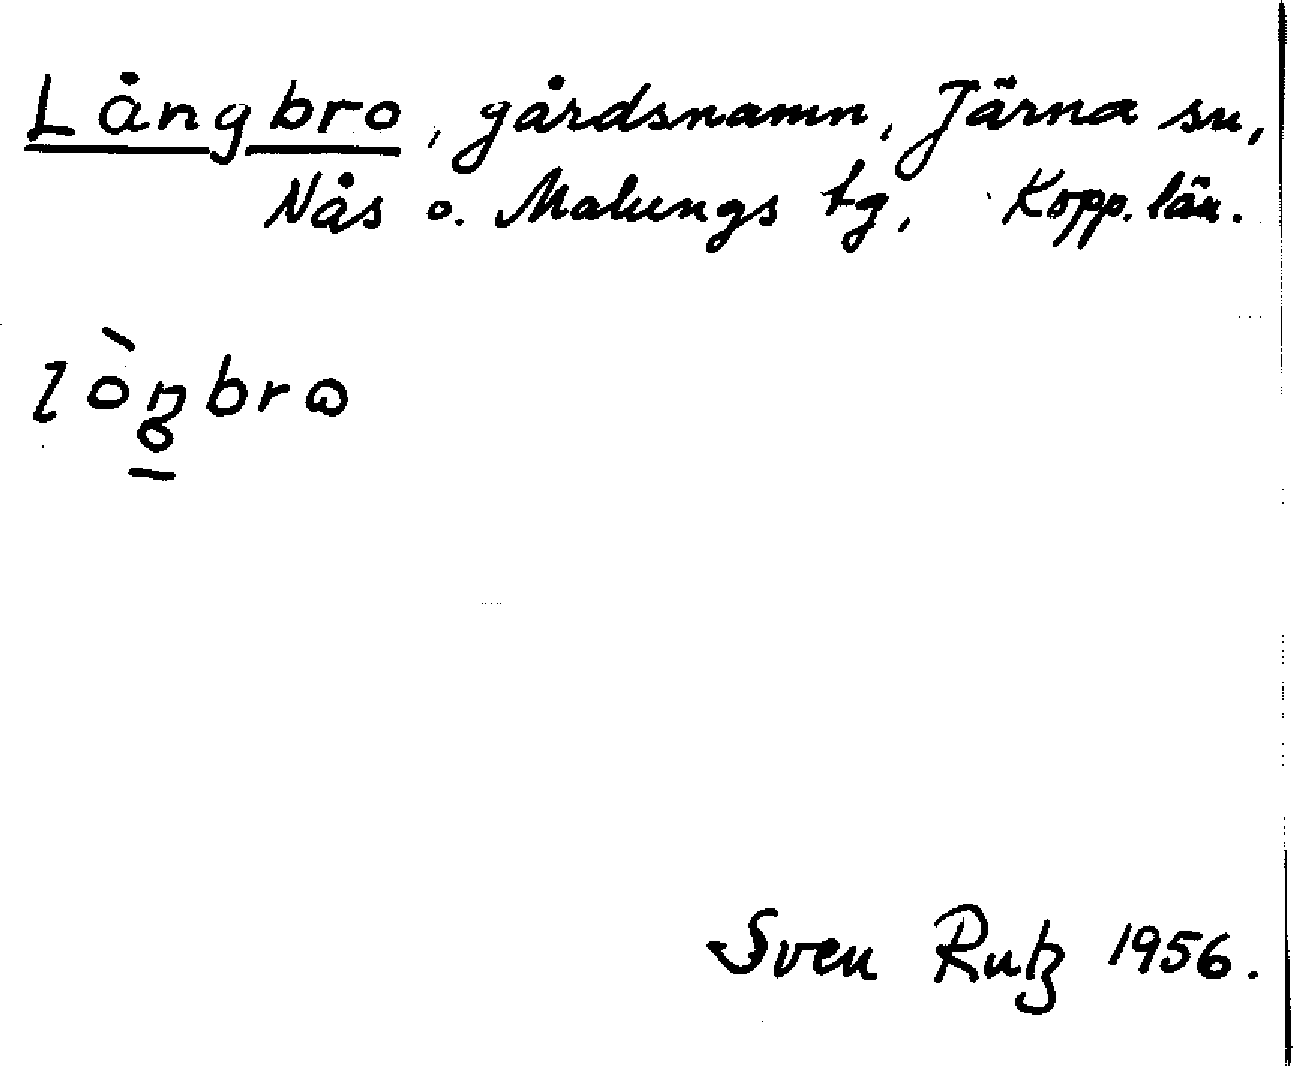 Långbro, gårdsnamn, Järna sn,
Nås o. Malungs tg, Kopp. län.
Sven Rutz 1956.